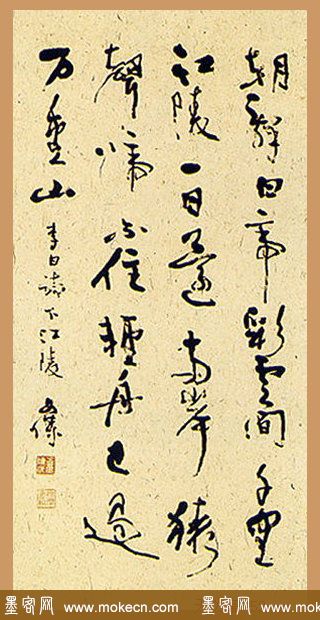 朝辭白帝彩雲間千里
江陵一日還兩岸猿
聲啼不住輕舟已過
万重山
李白詩下江陵
墨客网 www.mokecn.com 墨客网 www.mokecn.com